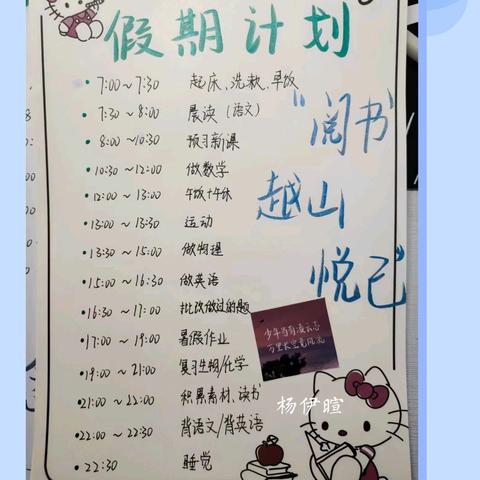 假期计划
7:00~7:30 起床、洗漱、早饭
7:30~8:00 晨读(语文)
8:00~10:30 预习新课
10:30~12:00 做数学
12:00~13:00 午饭+午休
13:00~13:30 运动
13:30~15:00 做物理
15:00~16:30 做英语
16:30~17:00 批改做过的题
17:00~19:00 暑假作业
19:00~21:00 复习生物/化学
21:00~22:00 积累素材、读书
22:00~22:30 背语文/背英语
22:30 睡觉
"阅书
越山
悦己"
少年当有凌云志
万里长空竞风流
杨伊暄